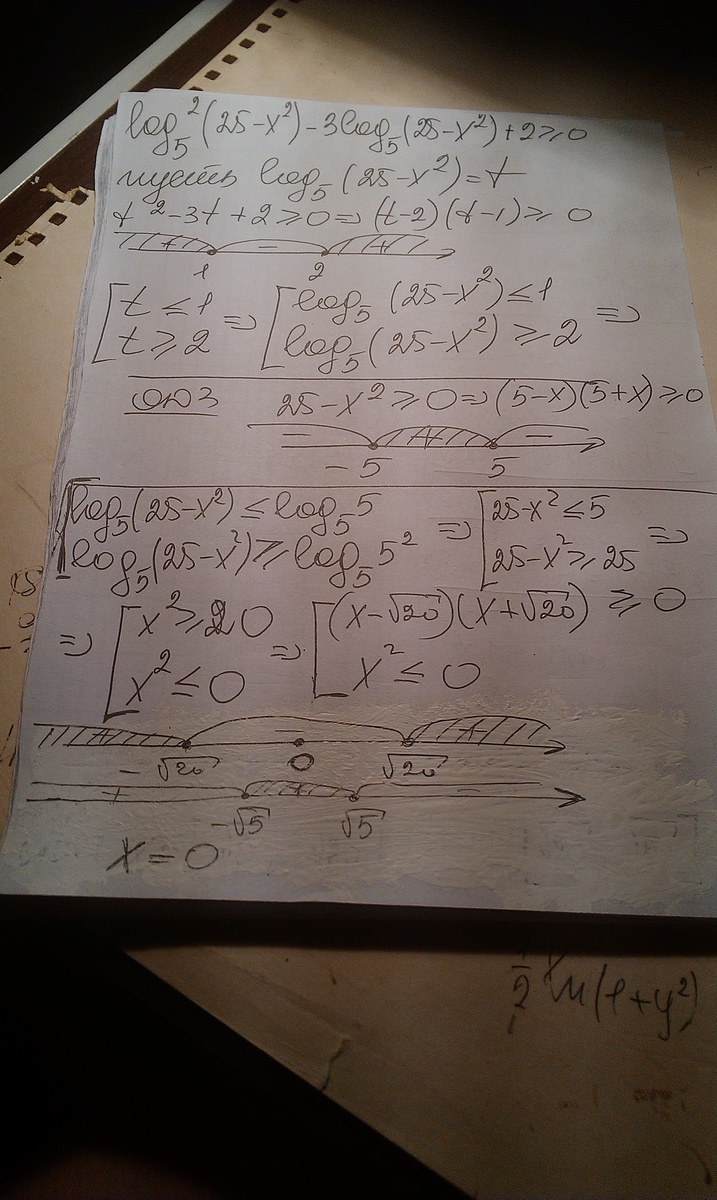 log₅²(25-x²)-3log₅(25-x²)+2≥0
пусть log₅(25-x²)=t
t²-3t+2≥0⇒(t-2)(t-1)≥0
+ - +
1 2
[t≤1 ⇒ [log₅(25-x²)≤1 ⇒
t≥2 log₅(25-x²)≥2
ОДЗ 25-x²≥0⇒(5-x)(5+x)≥0
- + -
-5 5
[log₅(25-x²)≤log₅5 ⇒ [25-x²≤5 ⇒
log₅(25-x²)≥log₅5² 25-x²≥25
⇒ [x²≥20 ⇒ [(x-√20)(x+√20)≥0
x²≤0 x²≤0
+ - +
-√20 0 √20
+ + -
-√5 √5
x=0
1/2 ln(1+y²)